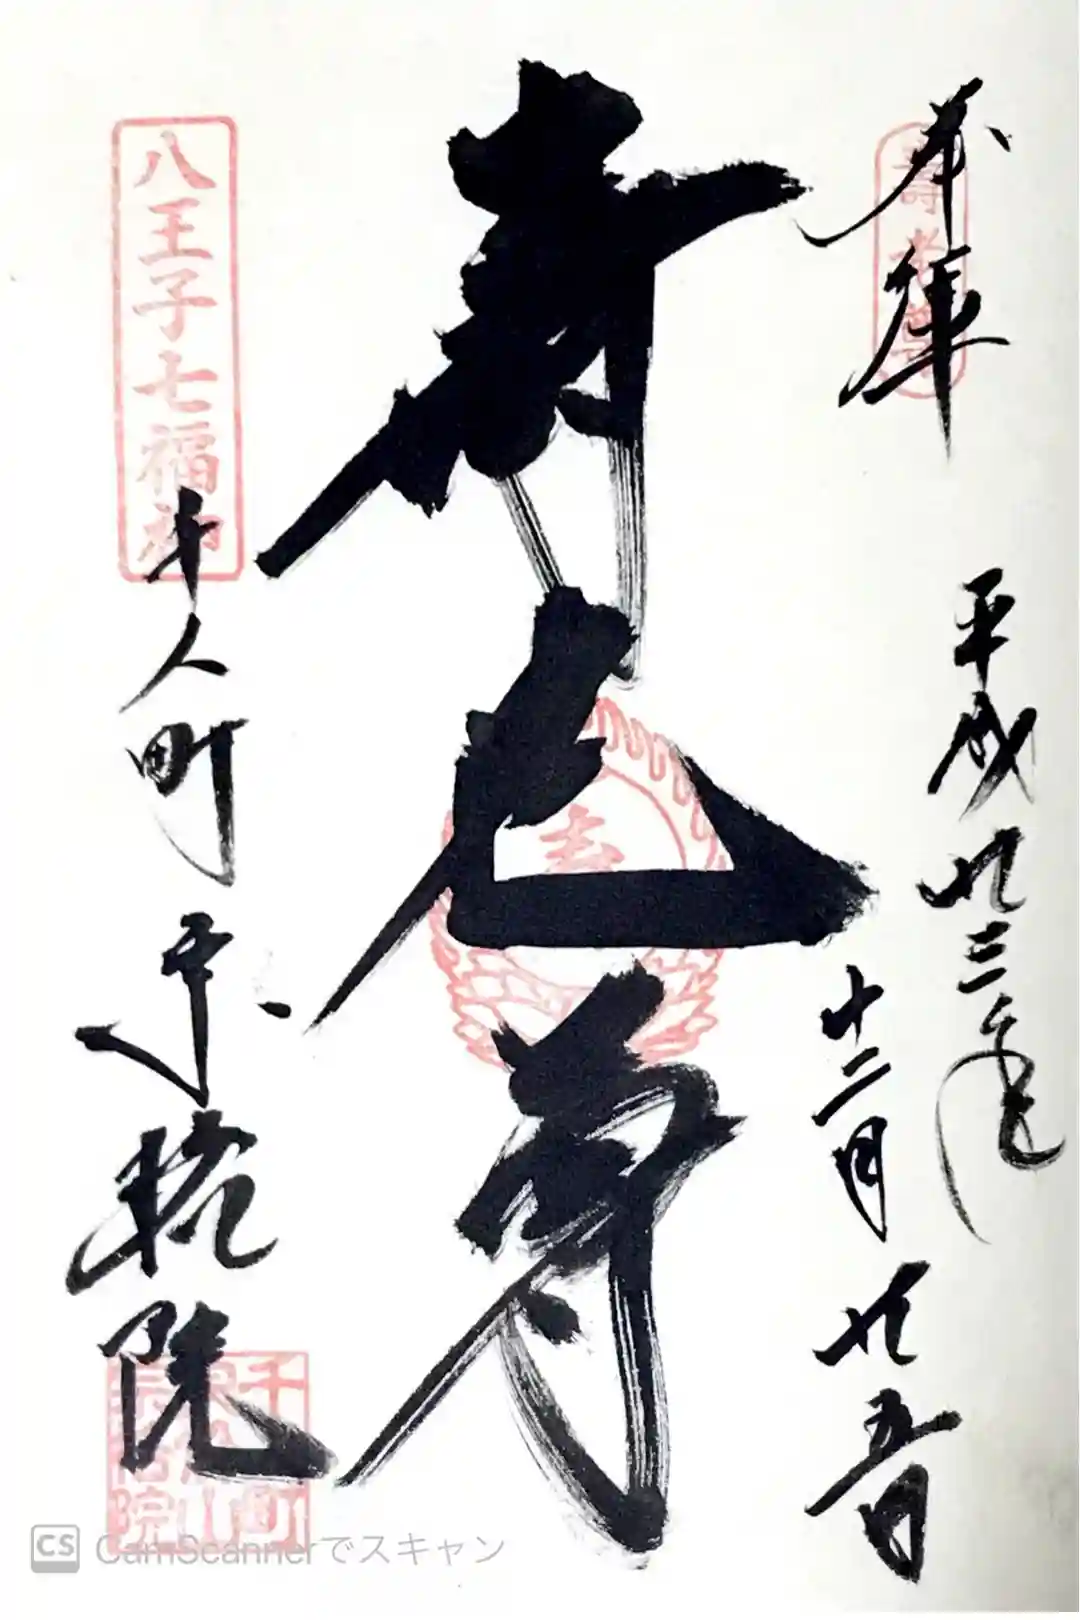 奉拝
壽老尊
平成廿三年
十二月廿五日
寿老尊
八王子七福神
千人町宗格院
CS CamScannerでスキャン